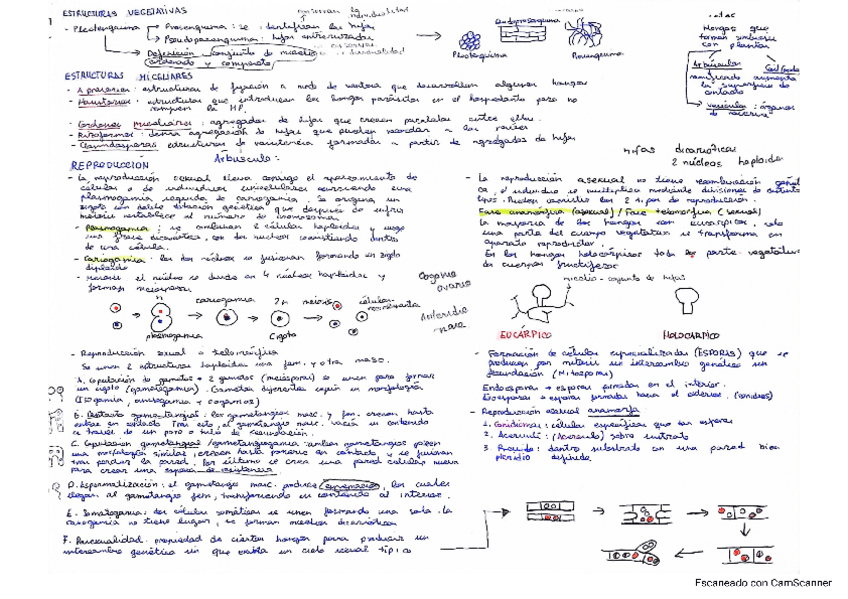 ESTRUCTURAS VEGETATIVAS
- Plectenquima → Prosenquima: se identifican las hifas
→ Pseudoparenquima: hifas entrecruzadas
Definición conjunto de micelio
ordenado y compacto
Plectenquima
Prosenquima
Hongos que
forman simbiosis
con plantas
Arbúsculo
ramificado aumenta
la superficie de
contacto
→ vesícula: órganos
de reserva
ESTRUCTURAS MICELIARES
- Apresorios: estructuras de fijación a modo de ventosa que desarrollan algunos hongos
- Haustorios: estructuras que introducen los hongos parásitos en el hospedante pero no
rompen la MP.
- Cordones miceliares: agregados de hifas que crecen paralelas entre ellas.
- Rizoformos: densa agregación de hifas que pueden recordar a las raíces
- Clamidosporas estructuras de resistencia formadas a partir de agregados de hifas
Arbúsculo:
hifas dicarióticas
2 núcleos haploides
REPRODUCCIÓN
- La reproducción sexual lleva consigo el apareamiento de
células o de individuos unicelulares ocurriendo una
plasmogamia seguida de cariogamia. Se origina un
cigoto con doble dotación genética que después de sufrir
meiosis restablece el número de cromosomas.
- Plasmogamia: se fusionan 2 células haploides y surge
una fase dicariótica, con dos núcleos coexistiendo dentro
de una célula.
- Cariogamia: los dos núcleos se fusionan formando un zigoto
diploide
- meiosis el núcleo se divide en 4 núcleos haploides y
forman meiosporas.
Oogonio
ovario
Anteridio
n
cariogamia
2n
meiosis
células
plasmogamia
Cigoto
- Reproducción sexual o telemórfica
Se unen 2 estructuras haploides una fem. y otra masc.
A. Copulación de gametos → 2 gametos (meiosporas) se unen para formar
un cigoto (gametogamos). Gametos diferentes según su morfología
(Isogamia, anisogamia y oogamos)
B. Contacto gametangial: los gametangios masc. y fem. crecen hasta
entrar en contacto. Tras esto, el gametangio masc. vacía su contenido
a través de un poro o tubo de fecundación.
C. Copulación gametangial (gametangiogamia): ambos gametangios poseen
una morfología similar, crecen hasta ponerse en contacto y se fusionan
tras perder la pared. Por último se crea una pared celular nueva
para crear una espora de resistencia
D. Espermatización: el gametangio masc. produce espermacios, los cuales
llegan al gametangio fem. transfiriendo su contenido al interior.
E. Somatogamia: dos células somáticas se unen formando una sola. La
cariogamia no tiene lugar, se forman micelios dicarióticos
F. Parasexualidad: propiedad de ciertos hongos para producir un
intercambio genético sin que exista un ciclo sexual típico
- La reproducción asexual no tiene recombinación genéti
ca, el individuo se multiplica mediante divisiones de distinto
tipos. Pueden ocurrir los 2 t. por de reproducción.
Fase anamorfa (asexual) / Fase telomorfa (sexual)
La mayoría de los hongos son eucárpicos, solo
una parte del cuerpo vegetativo se transforma en
aparato reproductor.
En los hongos holocárpicos toda la parte vegetativa
da cuerpos fructíferos
micelio - conjunto de hifas
EUCÁRPICO
HOLOCÁRPICO
- Formación de células especializadas (ESPORAS) que se
producen por mitosis sin intercambio genético sin
fecundación (Mitosporas)
Endosporas → esporas formadas en el interior.
Exosporas → esporas formadas hacia el exterior. (conidios)
- Reproducción asexual anamorfa
1. Conidiomas: células específicas que dan esporas
2. Acervuli: (Acérvulo) sobre sustrato
3. Picnidio: dentro sustrato con una pared bien
definida
Escaneado con CamScanner